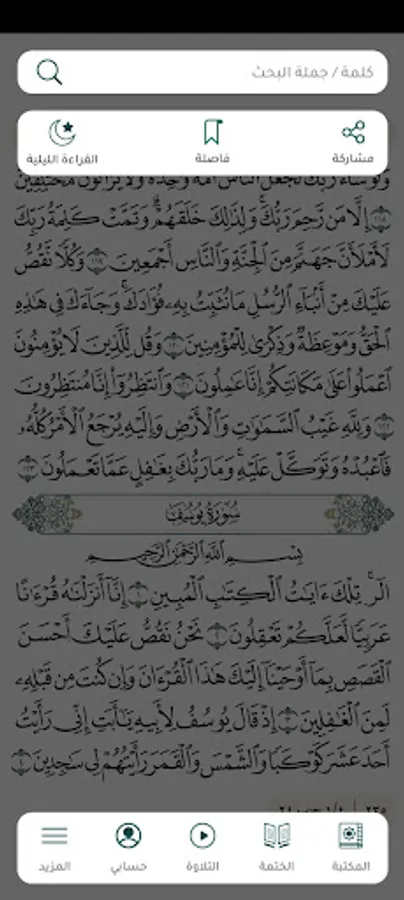 كلمة / جملة البحث
مشاركة
فاصلة
القراءة الليلية
وَلَوْ شَآءَ رَبُّكَ لَجَعَلَ ٱلنَّاسَ أُمَّةً وَٰحِدَةً وَلَا يَزَالُونَ مُخْتَلِفِينَ
۝١١٨ إِلَّا مَن رَّحِمَ رَبُّكَ وَلِذَٰلِكَ خَلَقَهُمْ وَتَمَّتْ كَلِمَةُ رَبِّكَ
لَأَمْلَأَنَّ جَهَنَّمَ مِنَ ٱلْجِنَّةِ وَٱلنَّاسِ أَجْمَعِينَ ۝١١٩ وَكُلًّا نَّقُصُّ
عَلَيْكَ مِنْ أَنۢبَآءِ ٱلرُّسُلِ مَا نُثَبِّتُ بِهِۦ فُؤَادَكَ وَجَآءَكَ فِى هَٰذِهِ
ٱلْحَقُّ وَمَوْعِظَةٌ وَذِكْرَىٰ لِلْمُؤْمِنِينَ ۝١٢٠ وَقُل لِّلَّذِينَ لَا يُؤْمِنُونَ
ٱعْمَلُوا۟ عَلَىٰ مَكَانَتِكُمْ إِنَّا عَٰمِلُونَ ۝١٢١ وَٱنتَظِرُوٓا۟ إِنَّا مُنتَظِرُونَ
۝١٢٢ وَلِلَّهِ غَيْبُ ٱلسَّمَٰوَٰتِ وَٱلْأَرْضِ وَإِلَيْهِ يُرْجَعُ ٱلْأَمْرُ كُلُّهُۥ
فَٱعْبُدْهُ وَتَوَكَّلْ عَلَيْهِ وَمَا رَبُّكَ بِغَٰفِلٍ عَمَّا تَعْمَلُونَ ۝١٢٣
سُورَةُ يُوسُفَ
بِسْمِ ٱللَّهِ ٱلرَّحْمَٰنِ ٱلرَّحِيمِ
الٓر تِلْكَ ءَايَٰتُ ٱلْكِتَٰبِ ٱلْمُبِينِ ۝١ إِنَّآ أَنزَلْنَٰهُ قُرْءَٰنًا
عَرَبِيًّا لَّعَلَّكُمْ تَعْقِلُونَ ۝٢ نَحْنُ نَقُصُّ عَلَيْكَ أَحْسَنَ
ٱلْقَصَصِ بِمَآ أَوْحَيْنَآ إِلَيْكَ هَٰذَا ٱلْقُرْءَانَ وَإِن كُنتَ مِن قَبْلِهِۦ
لَمِنَ ٱلْغَٰفِلِينَ ۝٣ إِذْ قَالَ يُوسُفُ لِأَبِيهِ يَٰٓأَبَتِ إِنِّى رَأَيْتُ
أَحَدَ عَشَرَ كَوْكَبًا وَٱلشَّمْسَ وَٱلْقَمَرَ رَأَيْتُهُمْ لِى سَٰجِدِينَ ۝٤
المكتبة
الختمة
التلاوة
حسابي
المزيد